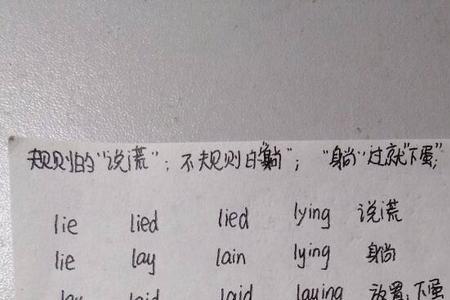 规则的"说谎"; 不规则的"躺"; "躺"过就"下蛋";
lie lied lied lying 说谎
lie lay lain lying 躺
lay laid laid laying 放置,下蛋